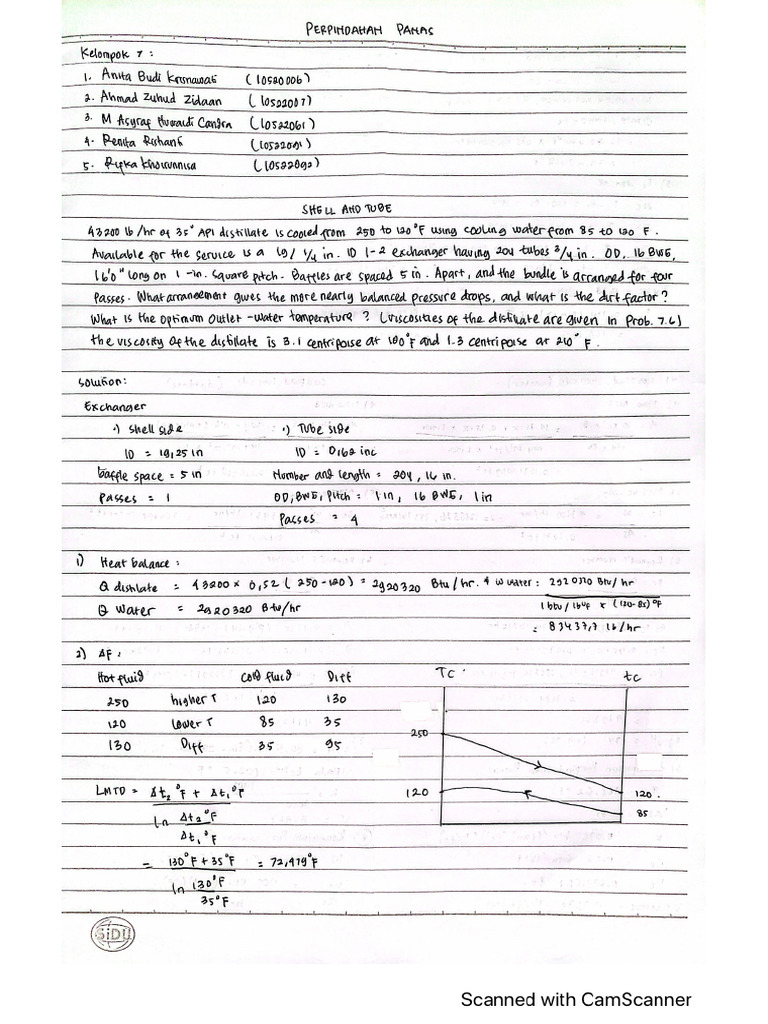 PERPINDAHAN PANAS
Kelompok 7 :
1. Anita Budi Krisnawati (10520006)
2. Ahmad Zuhud Zidaan (10522007)
3. M Asyraf Huwaidi Candra (10522061)
4. Renita Rishanti (10522091)
5. Rifka Khoirunnisa (10522092)
SHELL AND TUBE
43200 lb/hr of 35° API distillate is cooled from 250 to 120°F using cooling water from 85 to 120 F.
Available for the service is a 19 1/4 in. ID 1-2 exchanger having 204 tubes 3/4 in. OD, 16 BWG,
16'0" long on 1-in. square pitch. Baffles are spaced 5 in. Apart, and the bundle is arranged for four
Passes. What arrangement gives the more nearly balanced pressure drops, and what is the dirt factor?
What is the optimum outlet-water temperature? (viscosities of the distillate are given in Prob. 7.6)
the viscosity of the distillate is 3.1 centripoise at 100°F and 1.3 centripoise at 210° F.
Solution:
Exchanger
•) Shell side •) Tube side
ID = 19,25 in ID = 0,62 inc
baffle space = 5 in Number and length = 204, 16 in.
Passes = 1 OD, BWG, Pitch = 1 in, 16 BWG, 1 in
Passes = 4
1) Heat balance :
Q distilate = 43200 x 0,52 (250-120) = 2920320 Btu/hr. 4 W water : 2920320 Btu/hr
Q Water = 2920320 Btu/hr 1 btu/lb°F x (120-85)°F
= 83437,7 lb/hr
2) ΔF :
Hot fluid Cold fluid Diff
250 higher T 120 130
120 Lower T 85 35
130 Diff 35 95
LMTD = Δt₂°F + Δt₁°F
ln Δt₂°F
Δt₁°F
= 130°F + 35°F = 72,479°F
ln 130°F
35°F
TC tc
250
120 120
85
SiDU
Scanned with CamScanner